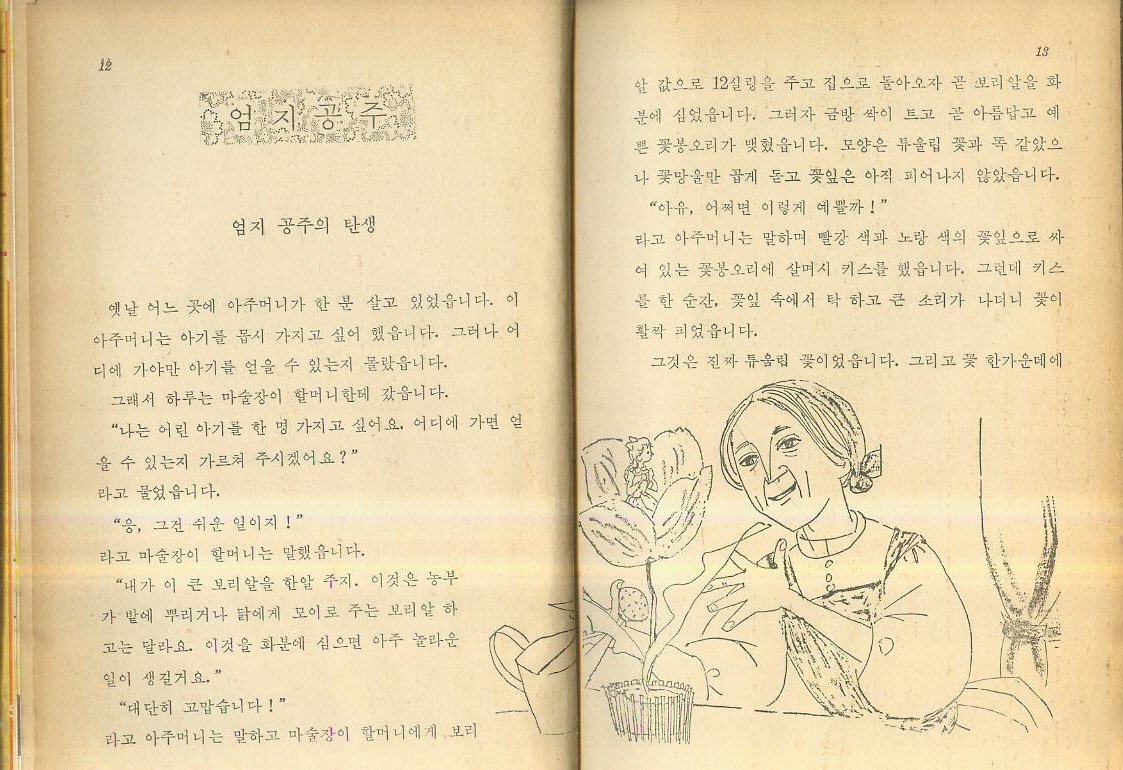 12
엄지공주
엄지 공주의 탄생
옛날 어느 곳에 아주머니가 한 분 살고 있었읍니다. 이
아주머니는 아기를 몹시 가지고 싶어 했읍니다. 그러나 어
디에 가야만 아기를 얻을 수 있는지 몰랐읍니다.
그래서 하루는 마술장이 할머니한테 갔읍니다.
“나는 어린 아기를 한 명 가지고 싶어요. 어디에 가면 얻
을 수 있는지 가르쳐 주시겠어요?”
라고 물었읍니다.
“응, 그건 쉬운 일이지!”
라고 마술장이 할머니는 말했읍니다.
“내가 이 큰 보리알을 한알 주지. 이것은 농부
가 밭에 뿌리거나 닭에게 모이로 주는 보리알 하
고는 달라요. 이것을 화분에 심으면 아주 놀라운
일이 생길거요.”
“대단히 고맙습니다!”
라고 아주머니는 말하고 마술장이 할머니에게 보리
13
알 값으로 12실링을 주고 집으로 돌아오자 곧 보리알을 화
분에 심었읍니다. 그러자 금방 싹이 트고 곧 아름답고 예
쁜 꽃봉오리가 맺혔읍니다. 모양은 튜울립 꽃과 똑 같았으
나 꽃망울만 곱게 돋고 꽃잎은 아직 피어나지 않았읍니다.
“아유, 어쩌면 이렇게 예쁠까!”
라고 아주머니는 말하며 빨강 색과 노랑 색의 꽃잎으로 싸
여 있는 꽃봉오리에 살며시 키스를 했읍니다. 그런데 키스
를 한 순간, 꽃잎 속에서 탁 하고 큰 소리가 나더니 꽃이
활짝 피었읍니다.
그것은 진짜 튜울립 꽃이었읍니다. 그리고 꽃 한가운데에